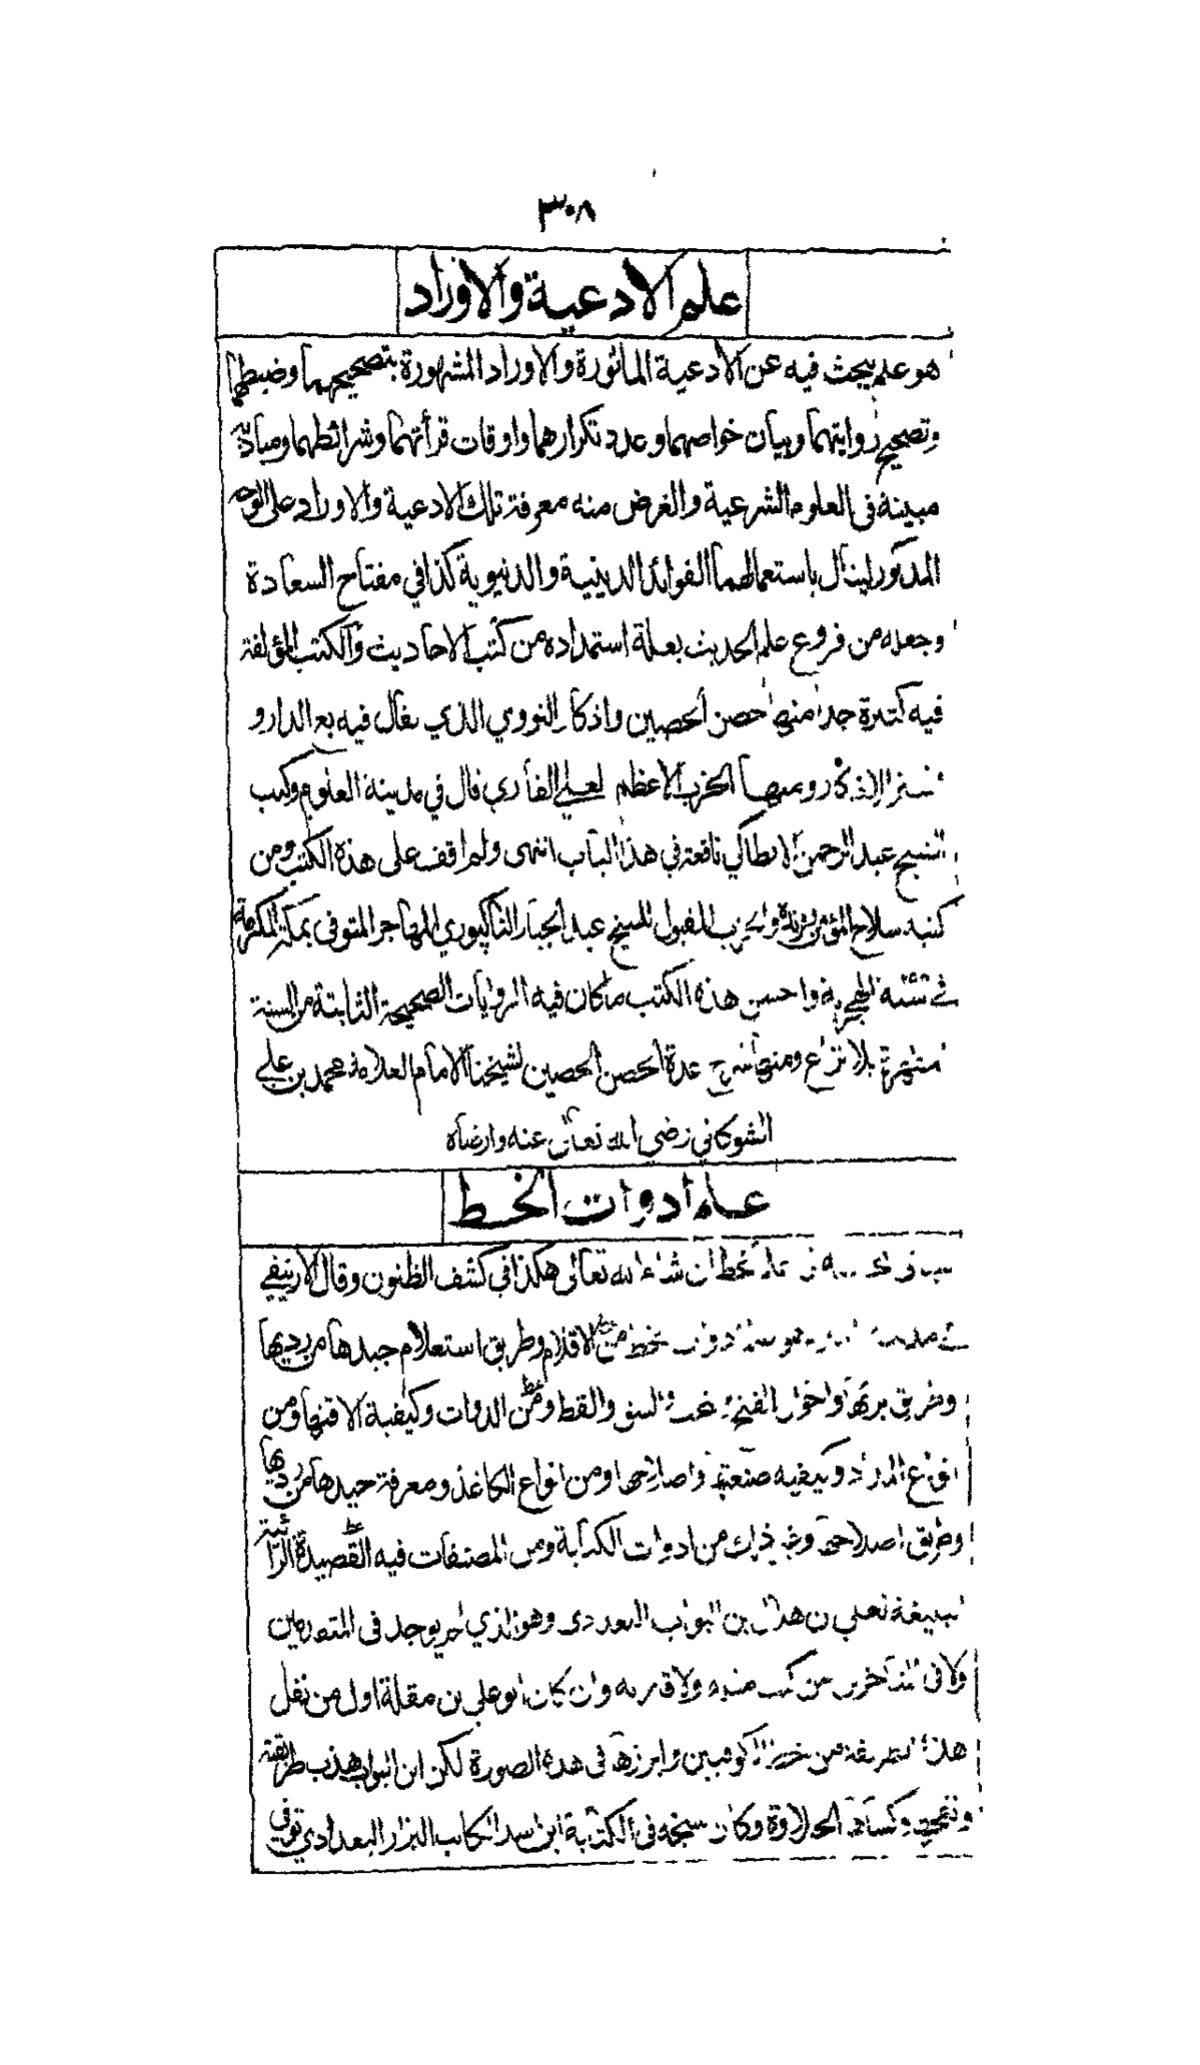 ٣٠٨
علم الادعية والاوراد
هو علم يبحث فيه عن الادعية الماثورة والاوراد المشهورة بتصحيحهما وضبطهما
وتصحيح روايتهما وبيان خواصهما وعدد تكرارهما واوقات قرأتهما وشرائطهما ومباديه
مبينة في العلوم الشرعية والغرض منه معرفة تلك الادعية والاوراد على الوجه
المذكور لينال باستعمالهما الفوائد الدينية والدنيوية كذا في مفتاح السعادة
وجعله من فروع علم الحديث بعلة استمداده من كتب الاحاديث والكتب المؤلفة
فيه كثيرة جدا منها حصن الحصين واذكار النووي الذي يقال فيه بع الدار و
اشتر الاذكار ومنها الحزب الاعظم لعلي القاري قال في مدينة العلوم وكتب
الشيخ عبد الرحمن الانطاكي نافعة في هذا الباب انتهى ولم اقف على هذه الكتب ومن
كتبه سلاح المؤمن وفرنده والحزب المقبول للشيخ عبد الجبار الناكپوري المهاجر المتوفى بمكة المكرمة
في الهجرية واحسن هذه الكتب ما كان فيه الروايات الصحيحة الثابتة من السنة
المطهرة بلا نزاع ومنها شرح عدة الحصن الحصين لشيخنا الامام العلامة محمد بن علي
الشوكاني رضي الله تعالى عنه وارضاه
علم ادوات الخط
علم الخط ان شاء الله تعالى هكذا في كشف الظنون وقال الارنيقي
في مدينة ادوات الخط من الاقلام وطريق استعلام جيدها من رديها
وطريق بريها واحوال الفتح والنحت والشق والقط ومن الدوات وكيفية الاقتها ومن
انواع المداد وكيفية صنعتها واصلاحها ومن انواع الكاغذ ومعرفة جيدها من رديها
وطريق اصلاحها وغير ذلك من ادوات الكتابة ومن المصنفات فيه القصيدة الرائية
البليغة لعلي بن هلال بن البواب البغدادي وهو الذي لم يوجد في المتقدمين
ولا في المتأخرين من كتب مثله ولا قاربه وان كان ابو علي بن مقلة اول من نقل
هذه الطريقة من خط الكوفيين وابرزها في هذه الصورة لكن ابن البواب هذب طريقته
ونقحها وكساها الحلاوة وكان شيخه في الكتابة ابن اسد الكاتب البزار البغدادي توفي